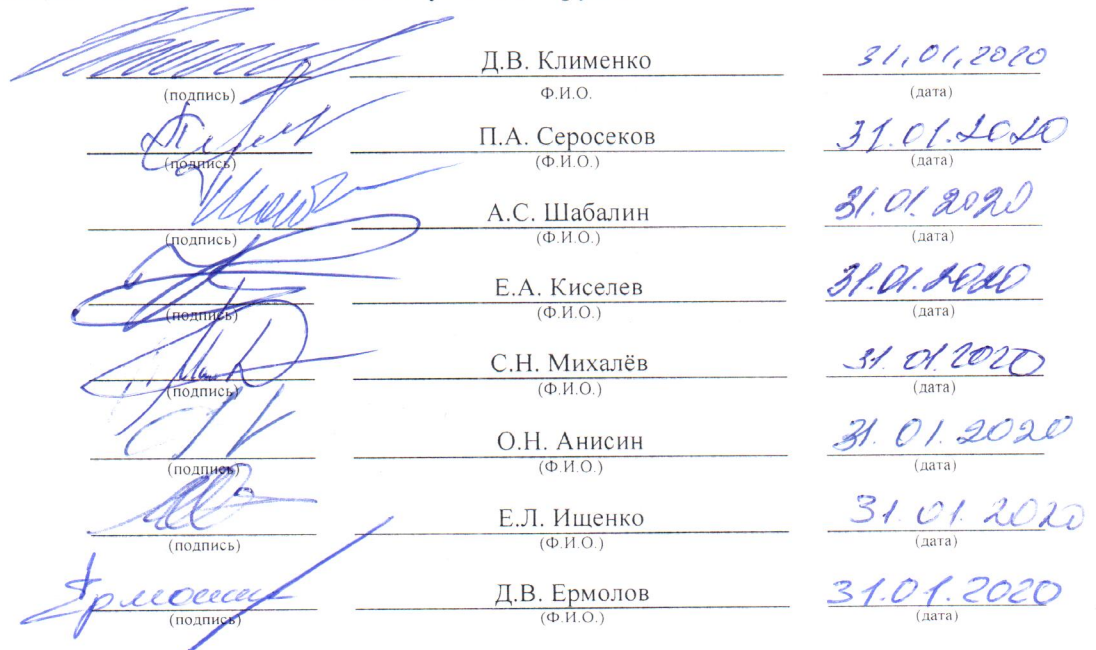 Д.В. Клименко 31,01,2020
(подпись) Ф.И.О. (дата)
П.А. Серосеков 31.01.2020
(подпись) (Ф.И.О.) (дата)
А.С. Шабалин 31.01.2020
(подпись) (Ф.И.О.) (дата)
Е.А. Киселев 31.01.2020
(подпись) (Ф.И.О.) (дата)
С.Н. Михалёв 31.01.2020
(подпись) (Ф.И.О.) (дата)
О.Н. Анисин 31.01.2020
(подпись) (Ф.И.О.) (дата)
Е.Л. Ищенко 31.01.2020
(подпись) (Ф.И.О.) (дата)
Д.В. Ермолов 31.01.2020
(подпись) (Ф.И.О.) (дата)